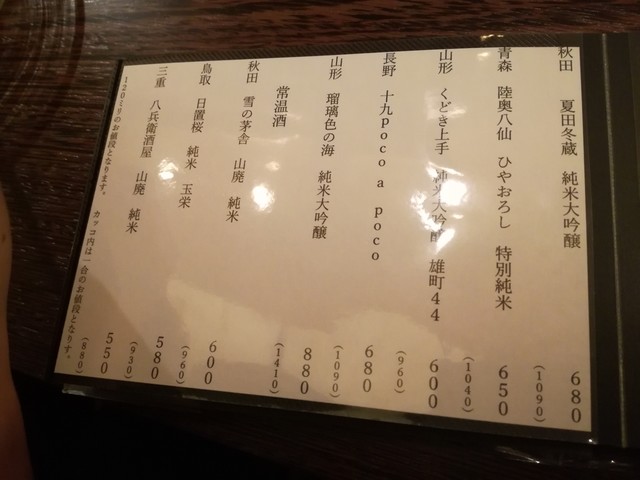 秋田 夏田冬蔵 純米大吟醸 680
(1090)
青森 陸奥八仙 ひやおろし 特別純米 650
(1040)
山形 くどき上手 純米大吟醸 雄町44 600
(960)
長野 十九poco a poco 680
(1090)
山形 瑠璃色の海 純米大吟醸 880
(1410)
常温酒
秋田 雪の茅舎 山廃 純米 600
(960)
鳥取 日置桜 純米 玉栄 580
(930)
三重 八兵衛酒屋 山廃 純米 550
(880)
120ミリのお値段となります。 カッコ内は一合のお値段となります。